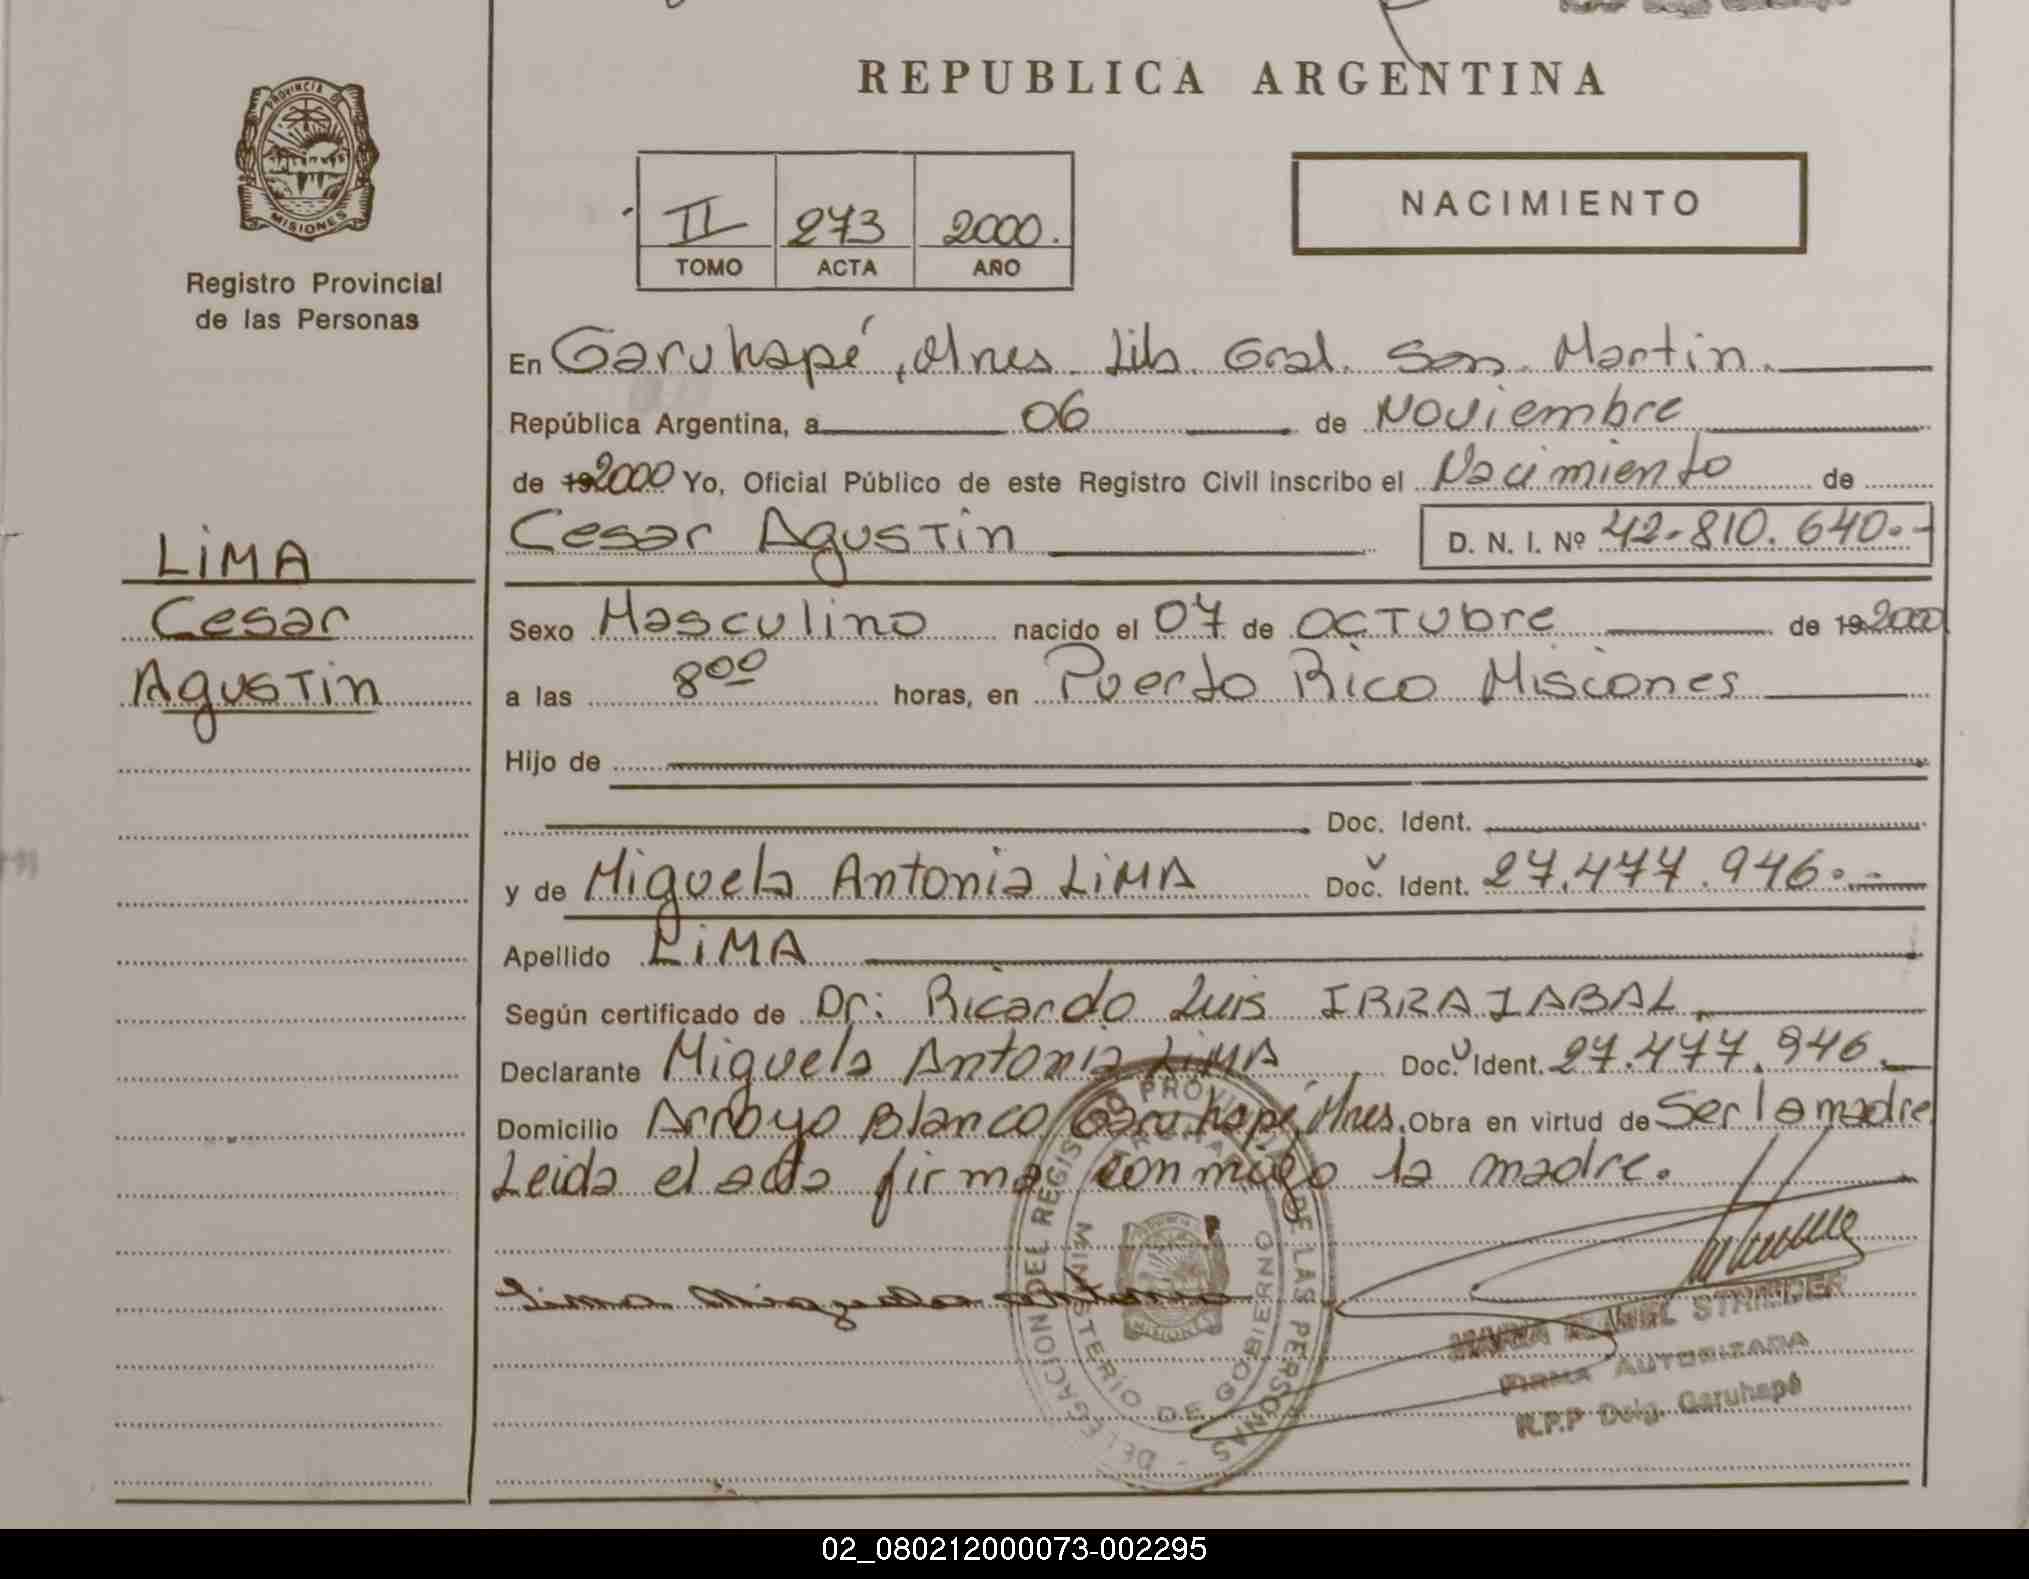 REPUBLICA ARGENTINA
PROVINCIA DE
MISIONES
Registro Provincial
de las Personas
II 273 2000.
TOMO ACTA AÑO
NACIMIENTO
En Garuhapé, Mnes. Lib. Gral. San. Martin.
República Argentina, a 06 de Noviembre
de 19 2000 Yo, Oficial Público de este Registro Civil inscribo el Nacimiento de
Cesar Agustin D. N. I. Nº 42.810.640.-
LiMA
Cesar
Agustin
Sexo Masculino nacido el 07 de Octubre de 19 2000
a las 8 00 horas, en Puerto Rico Misiones
Hijo de
Doc. Ident.
y de Miguela Antonia LiMA Doc. Ident. 27.477.946.-
Apellido LiMA
Según certificado de Dr: Ricardo Luis
Declarante Miguela Antonia LiMA Doc. Ident. 27.477.946.
Domicilio Arroyo Blanco Garuhapé, Mnes. Obra en virtud de Ser la madre
Leida el acta firma conmigo la madre.
Lima Miguela Antonia
DELEGACION DEL REGISTRO PROVINCIAL DE LAS PERSONAS
MINISTERIO DE GOBIERNO
MISIONES
MARIA STRIEDER
FIRMA AUTORIZADA
R.P.P Delg. Garuhapé
02_080212000073-002295